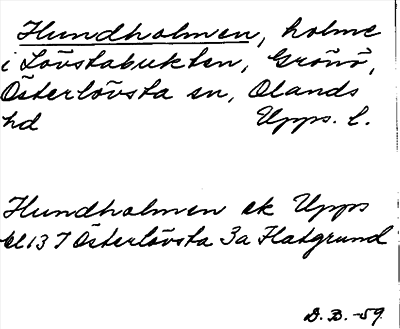 Hundholmen, holme
i Lövstabukten, Grönö,
Österlövsta sn, Olands
hd Upps. l.
Hundholmen ek Upps
bl 13 7 Österlövsta 3a Flatgrund
D. B. -59.